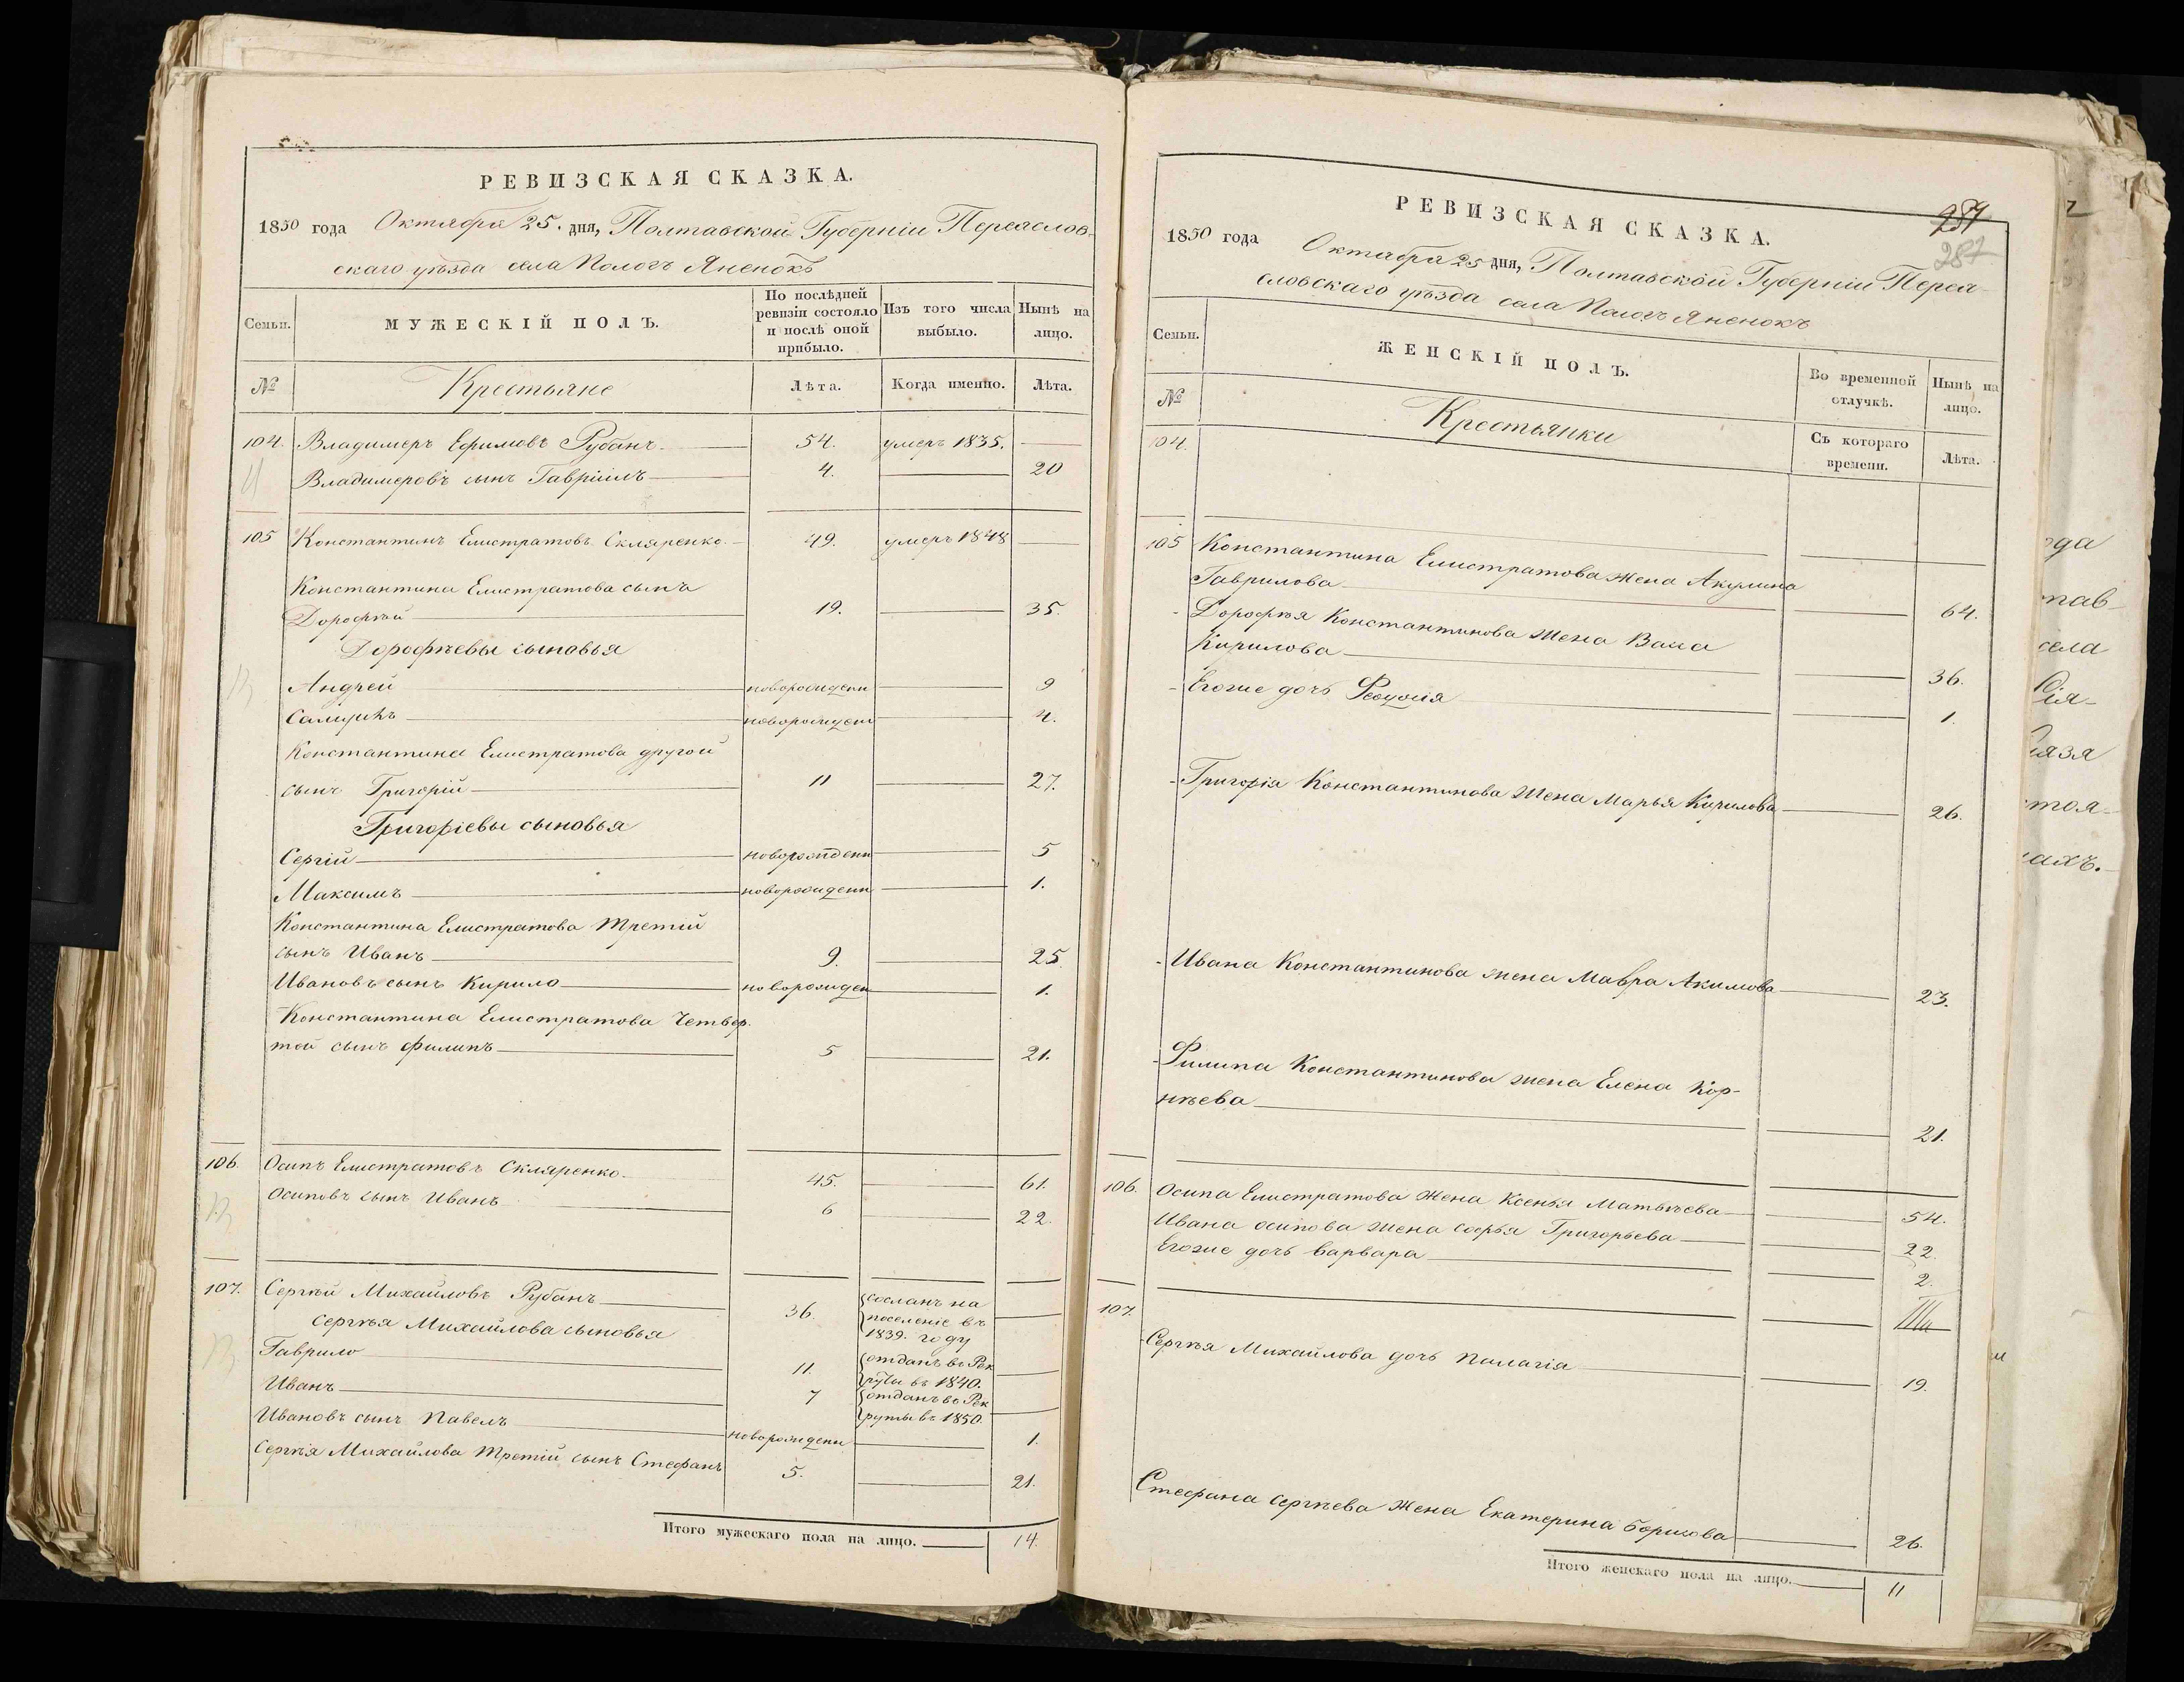 РЕВИЗСКАЯ СКАЗКА.
1850 года Октября 25. дня, Полтавской Губерніи Переяслов-
скаго уѣзда села Пологъ Яненокъ
Семьи.
МУЖЕСКІЙ ПОЛЪ.
По послѣдней ревизіи состояло и послѣ оной прибыло.
Изъ того числа выбыло.
Нынѣ на лицо.
№ Крестьяне Лѣта. Когда именно. Лѣта.
104. Владимеръ Ефимовъ Рубанъ 54. умеръ 1835.
Владимеровъ сынъ Гавріилъ 4. 20
105 Константинъ Елистратовъ Скляренко 49. умеръ 1848
Константина Елистратова сынъ
Дорофѣй 19. 35.
Дорофѣевы сыновья
Андрей новорожденн 9
новорожден 4.
Константина Елистратова другой
сынъ Григорій 11 27.
Григоріевы сыновья
Сергій новорожденн 5
Максимъ новорожденн 1.
Константина Елистратова третій
сынъ Иванъ 9. 25
Ивановъ сынъ Кирило новорожден 1.
Константина Елистратова Четвер-
той сынъ Филипъ 5 21.
106. Осипъ Елистратовъ Скляренко 45. 61.
Осиповъ сынъ Иванъ 6 22.
107. Сергѣй Михайловъ Рубанъ 36. сосланъ на
поселеніе въ
1839. году
Сергѣя Михайлова сыновья
Гаврило 11. отданъ въ Рек
руты въ 1840.
Иванъ 7 отданъ въ Рек
руты въ 1850.
Ивановъ сынъ Павелъ новорожденн 1.
Сергѣя Михайлова третій сынъ Стефанъ 5. 21.
Итого мужескаго пола на лицо. 14.
287
РЕВИЗСКАЯ СКАЗКА.
1850 года Октября 25 дня, Полтавской Губерніи Перея-
словскаго уѣзда села Пологъ Яненокъ
Семьи.
ЖЕНСКІЙ ПОЛЪ.
Во временной отлучкѣ.
Нынѣ на лицо.
№ Крестьянки Съ котораго времени. Лѣта.
104.
105 Константина Елистратова жена Акулина
Гаврилова 64.
Дорофѣя Константинова жена Васса
Кирилова 36.
Егоже дочь 1.
Григорія Константинова жена Марья Кирилова 26.
Ивана Константинова жена Мавра Акимова 23.
Филипа Константинова жена Елена Кор-
нѣева 21.
106. Осипа Елистратова жена Ксенья Матвѣева 54.
Ивана Осипова жена Софья Григорьева 22.
Егоже дочь Варвара 2.
107.
Сергѣя Михайлова дочь Палагія 19.
Стефана Сергѣева жена Екатерина Борисова 26.
Итого женскаго пола на лицо. 11